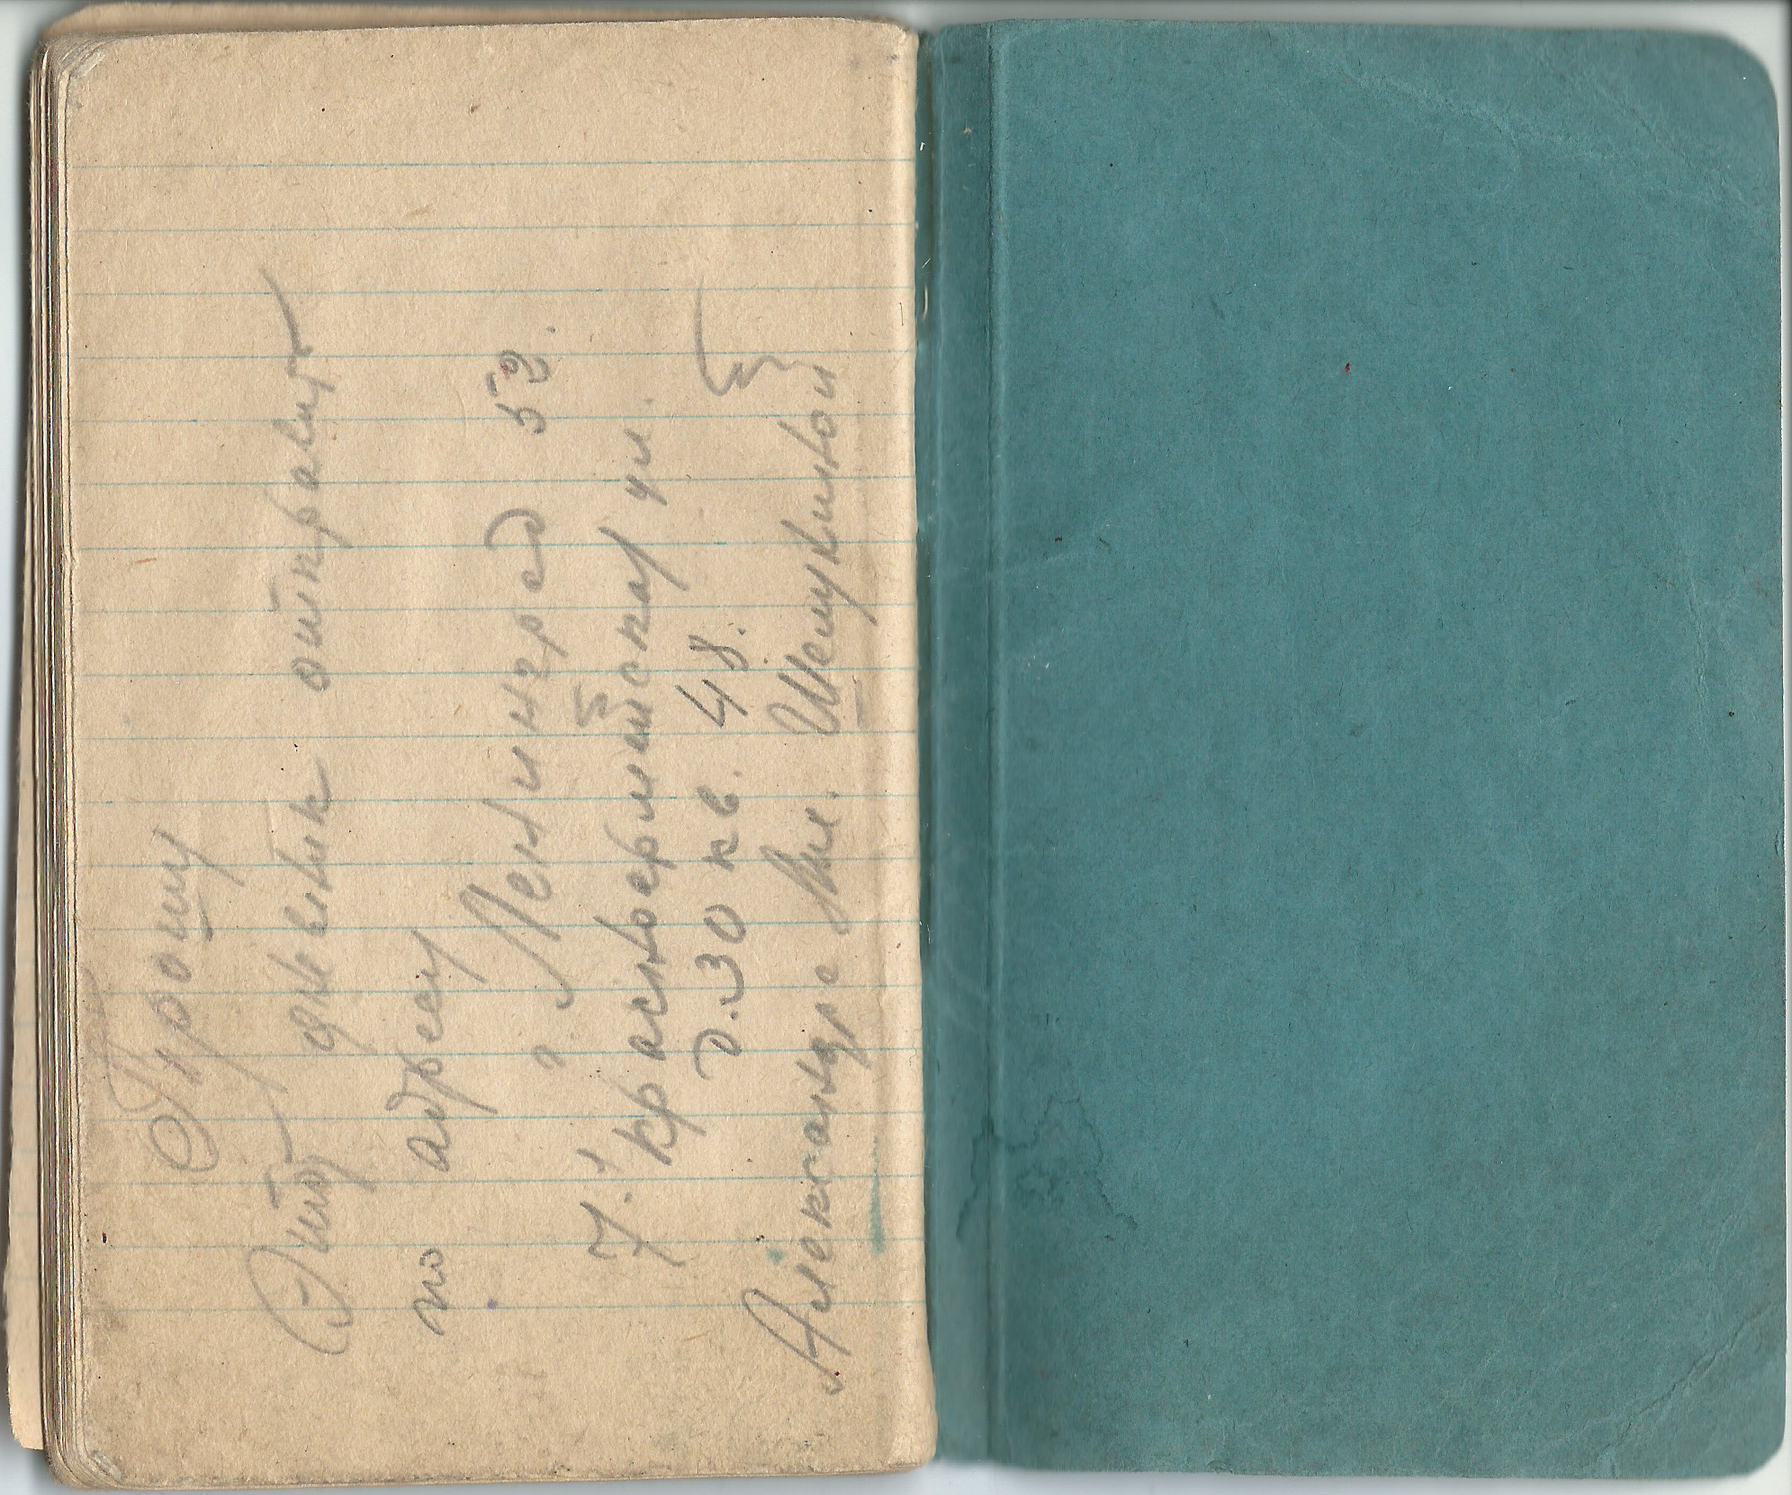 Прошу
Этот дневник отправит
по адресу
г. Ленинград 52.
7. Красноармейская ул.
д. 30 кв. 48.
Александре Шемякиной